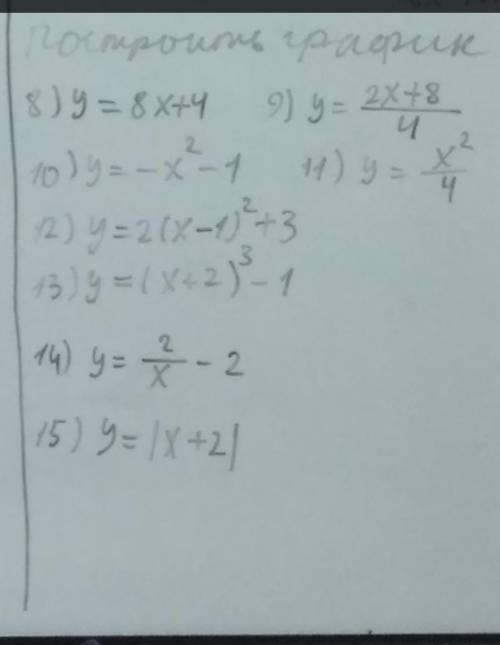 Построить график
8) y = 8x+4 9) y = \frac{2x+8}{4}
10) y = -x² - 1 11) y = \frac{x²}{4}
12) y = 2(x-1)² + 3
13) y = (x+2)³ - 1
14) y = \frac{2}{x} - 2
15) y = |x+2|